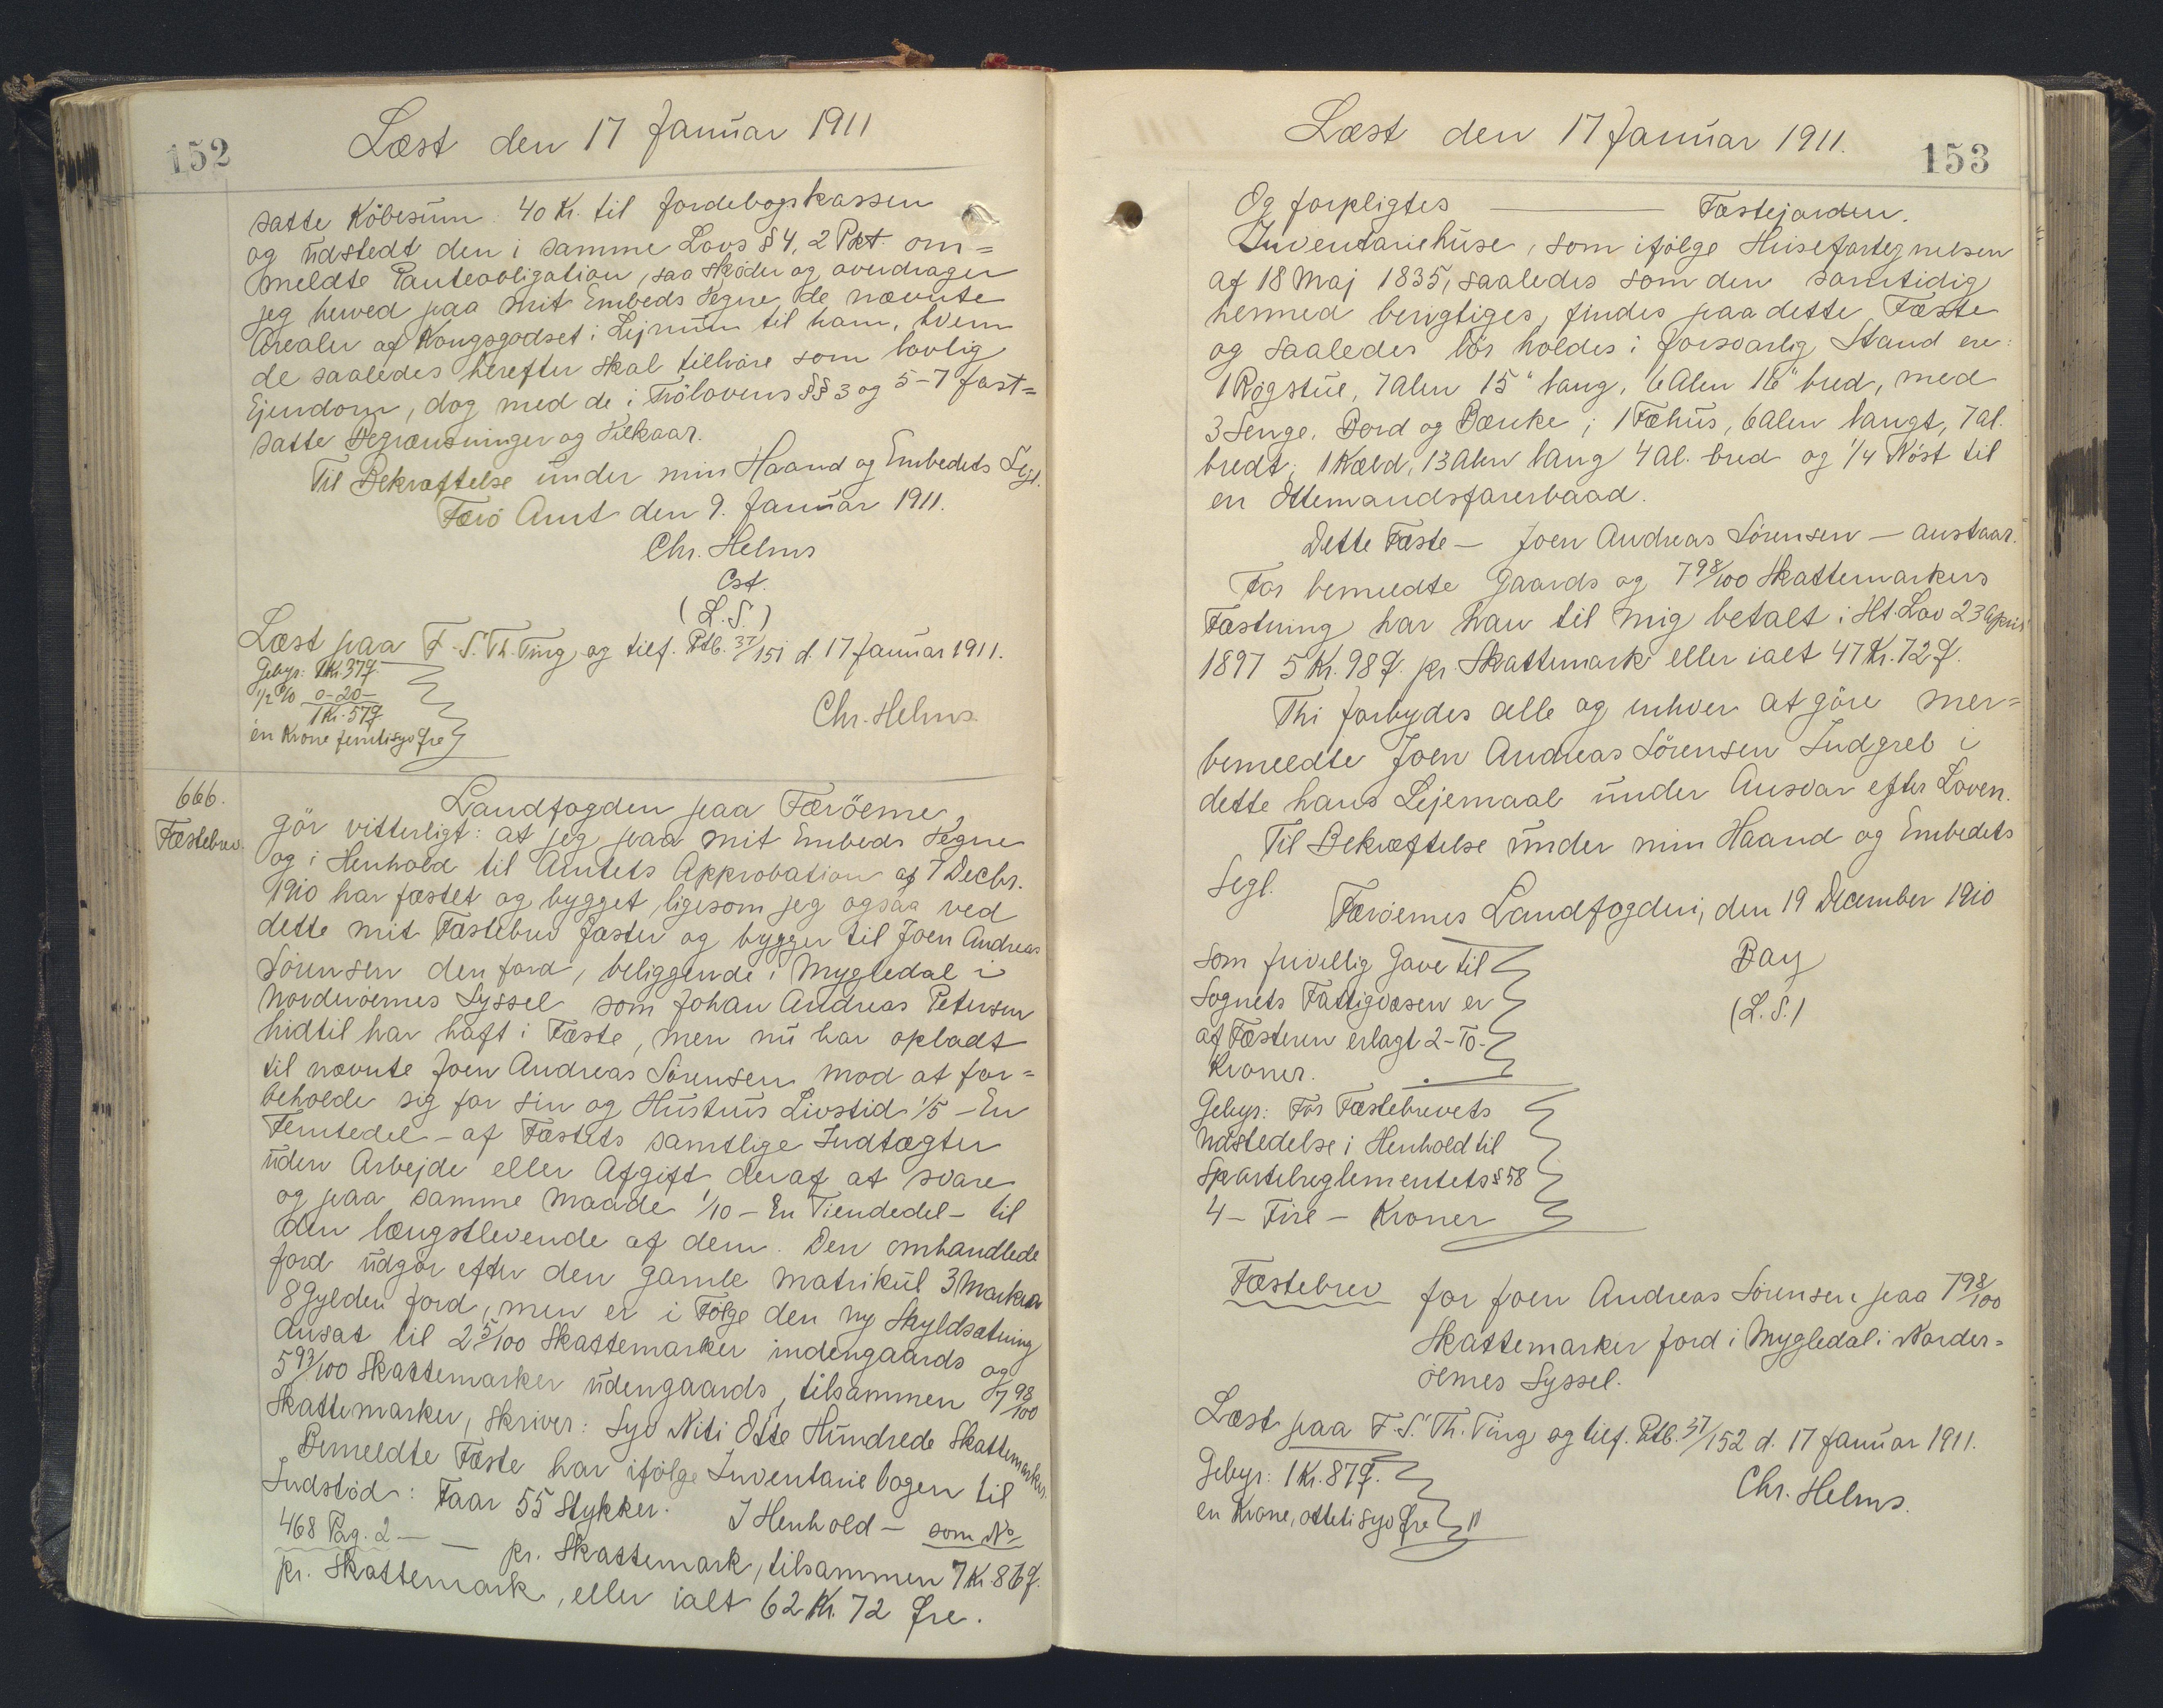 152
Læst den 17 Januar 1911
satte Købesum 40 Kr. til Jordebogskassen
og udstedt den i samme Lovs § 4, 2 Pkt. om=
meldte Panteobligation, saa skøder og overdrager
jeg herved paa mit Embeds Vegne de nævnte
Arealer af Kongsgodset i Lejnum til ham, hvem
de saaledes herefter skal tilhøre som lovlig
Ejendom, dog med de i Frölovens §§ 3 og 5-7 fast=
satte Begrænsninger og Vilkaar.
Til Bekræftelse under min Haand og Embedets Segl.
Færö Amt den 9. Januar 1911.
Chr. Helms
Cst.
(L.S.)
Læst paa F.S.Th. Ting og tilf. Ptb. 37/151 d. 17 Januar 1911.
Gebyr: 1 Kr. 37 Ø.
1/2 % 0-20-
1 Kr. 57 Ø
én Krone femtisyv Øre
Chr. Helms
666.
Fæstebrev.
Landfogden paa Færöerne
gör vitterligt: at jeg paa mit Embeds Vegne
og i Henhold til Amtets Approbation af 7 Decbr.
1910 har fæstet og bygget, ligesom jeg ogsaa ved
dette mit Fæstebrev fæster og bygger til Joen Andreas
Sörensen den Jord, beliggende i Mygledal i
Norderöernes Syssel som Johan Andreas Petersen
hidtil har haft i Fæste, men nu har opladt
til nævnte Joen Andreas Sörensen mod at for=
beholde sig for sin og Hustrus Livstid 1/5 - En
Femtedel - af Fæstets samtlige Indtægter
uden Arbejde eller Afgift deraf at svare
og paa samme Maade 1/10 - En Tiendedel - til
den længstlevende af dem. Den omhandlede
Jord udgör efter den gamle Matrikul 3 Marker
8 Gylden Jord, men er i Fölge den ny Skyldsætning
Ansat til 2 5/100 Skattemarker indengaards og
5 93/100 Skattemarker udengaards, tilsammen 7 98/100
Skattemarker, skriver: Syv Niti Otte Hundrede Skattemarker.
Bemeldte Fæste har ifölge Inventariebogen til
Indstöd: Faar 55 Stykker. I Henhold - som No
468 Pag. 2 — — pr. Skattemark, tilsammen 7 Kr. 86 Ø.
pr. Skattemark, eller ialt 62 Kr. 72 Øre.
Læst den 17 Januar 1911.
153
Og forpligtes ——— Fæstejorden.
Inventariehuse, som ifölge Husefortegnelsen
af 18 Maj 1835, saaledes som den samtidig
hermed berigtiges, findes paa dette Fæste
og saaledes bör holdes i forsvarlig Stand ere:
1 Rögstue, 7 Alen 15" lang, 6 Alen 16" bred, med
3 Senge, Bord og Bænke; 1 Fæhus, 6 Alen langt, 7 al.
bredt; 1 Kæld, 13 Alen lang 4 al. bred og 1/4 Nöst til
en Ottemandsfarerbaad.
Dette Fæste — Joen Andreas Sörensen — anstaar.
For bemeldte Gaards og 7 98/100 Skattemarkers
Fæstning har han til mig betalt i Ht. Lov 23 April
1897 5 Kr. 98 Ø. pr. Skattemark eller ialt 47 Kr. 72 Ø.
Thi forbydes alle og enhver at göre mer=
bemeldte Joen Andreas Sörensen Indgreb i
dette hans Lejemaal under Ansvar efter Loven.
Til Bekræftelse under min Haand og Embedets
Segl.
Færöernes Landfogderi, den 19 December 1910
Bay
(L.S.)
Som frivillig Gave til
Sognets Fattigvæsen er
af Fæsteren erlagt 2 - To -
Kroner.
Gebyr: For Fæstebrevets
Udstedelse i Henhold til
Sportelreglementets § 58
4 - Fire - Kroner
Fæstebrev for Joen Andreas Sörensen paa 7 98/100
Skattemarker Jord i Mygledal i Norder=
öernes Syssel.
Læst paa F.S.Th. Ting og tilf. Ptb. 37/152 d. 17 Januar 1911.
Gebyr: 1 Kr. 87 Ø.
en Krone, ottetisyv Øre
Chr. Helms.